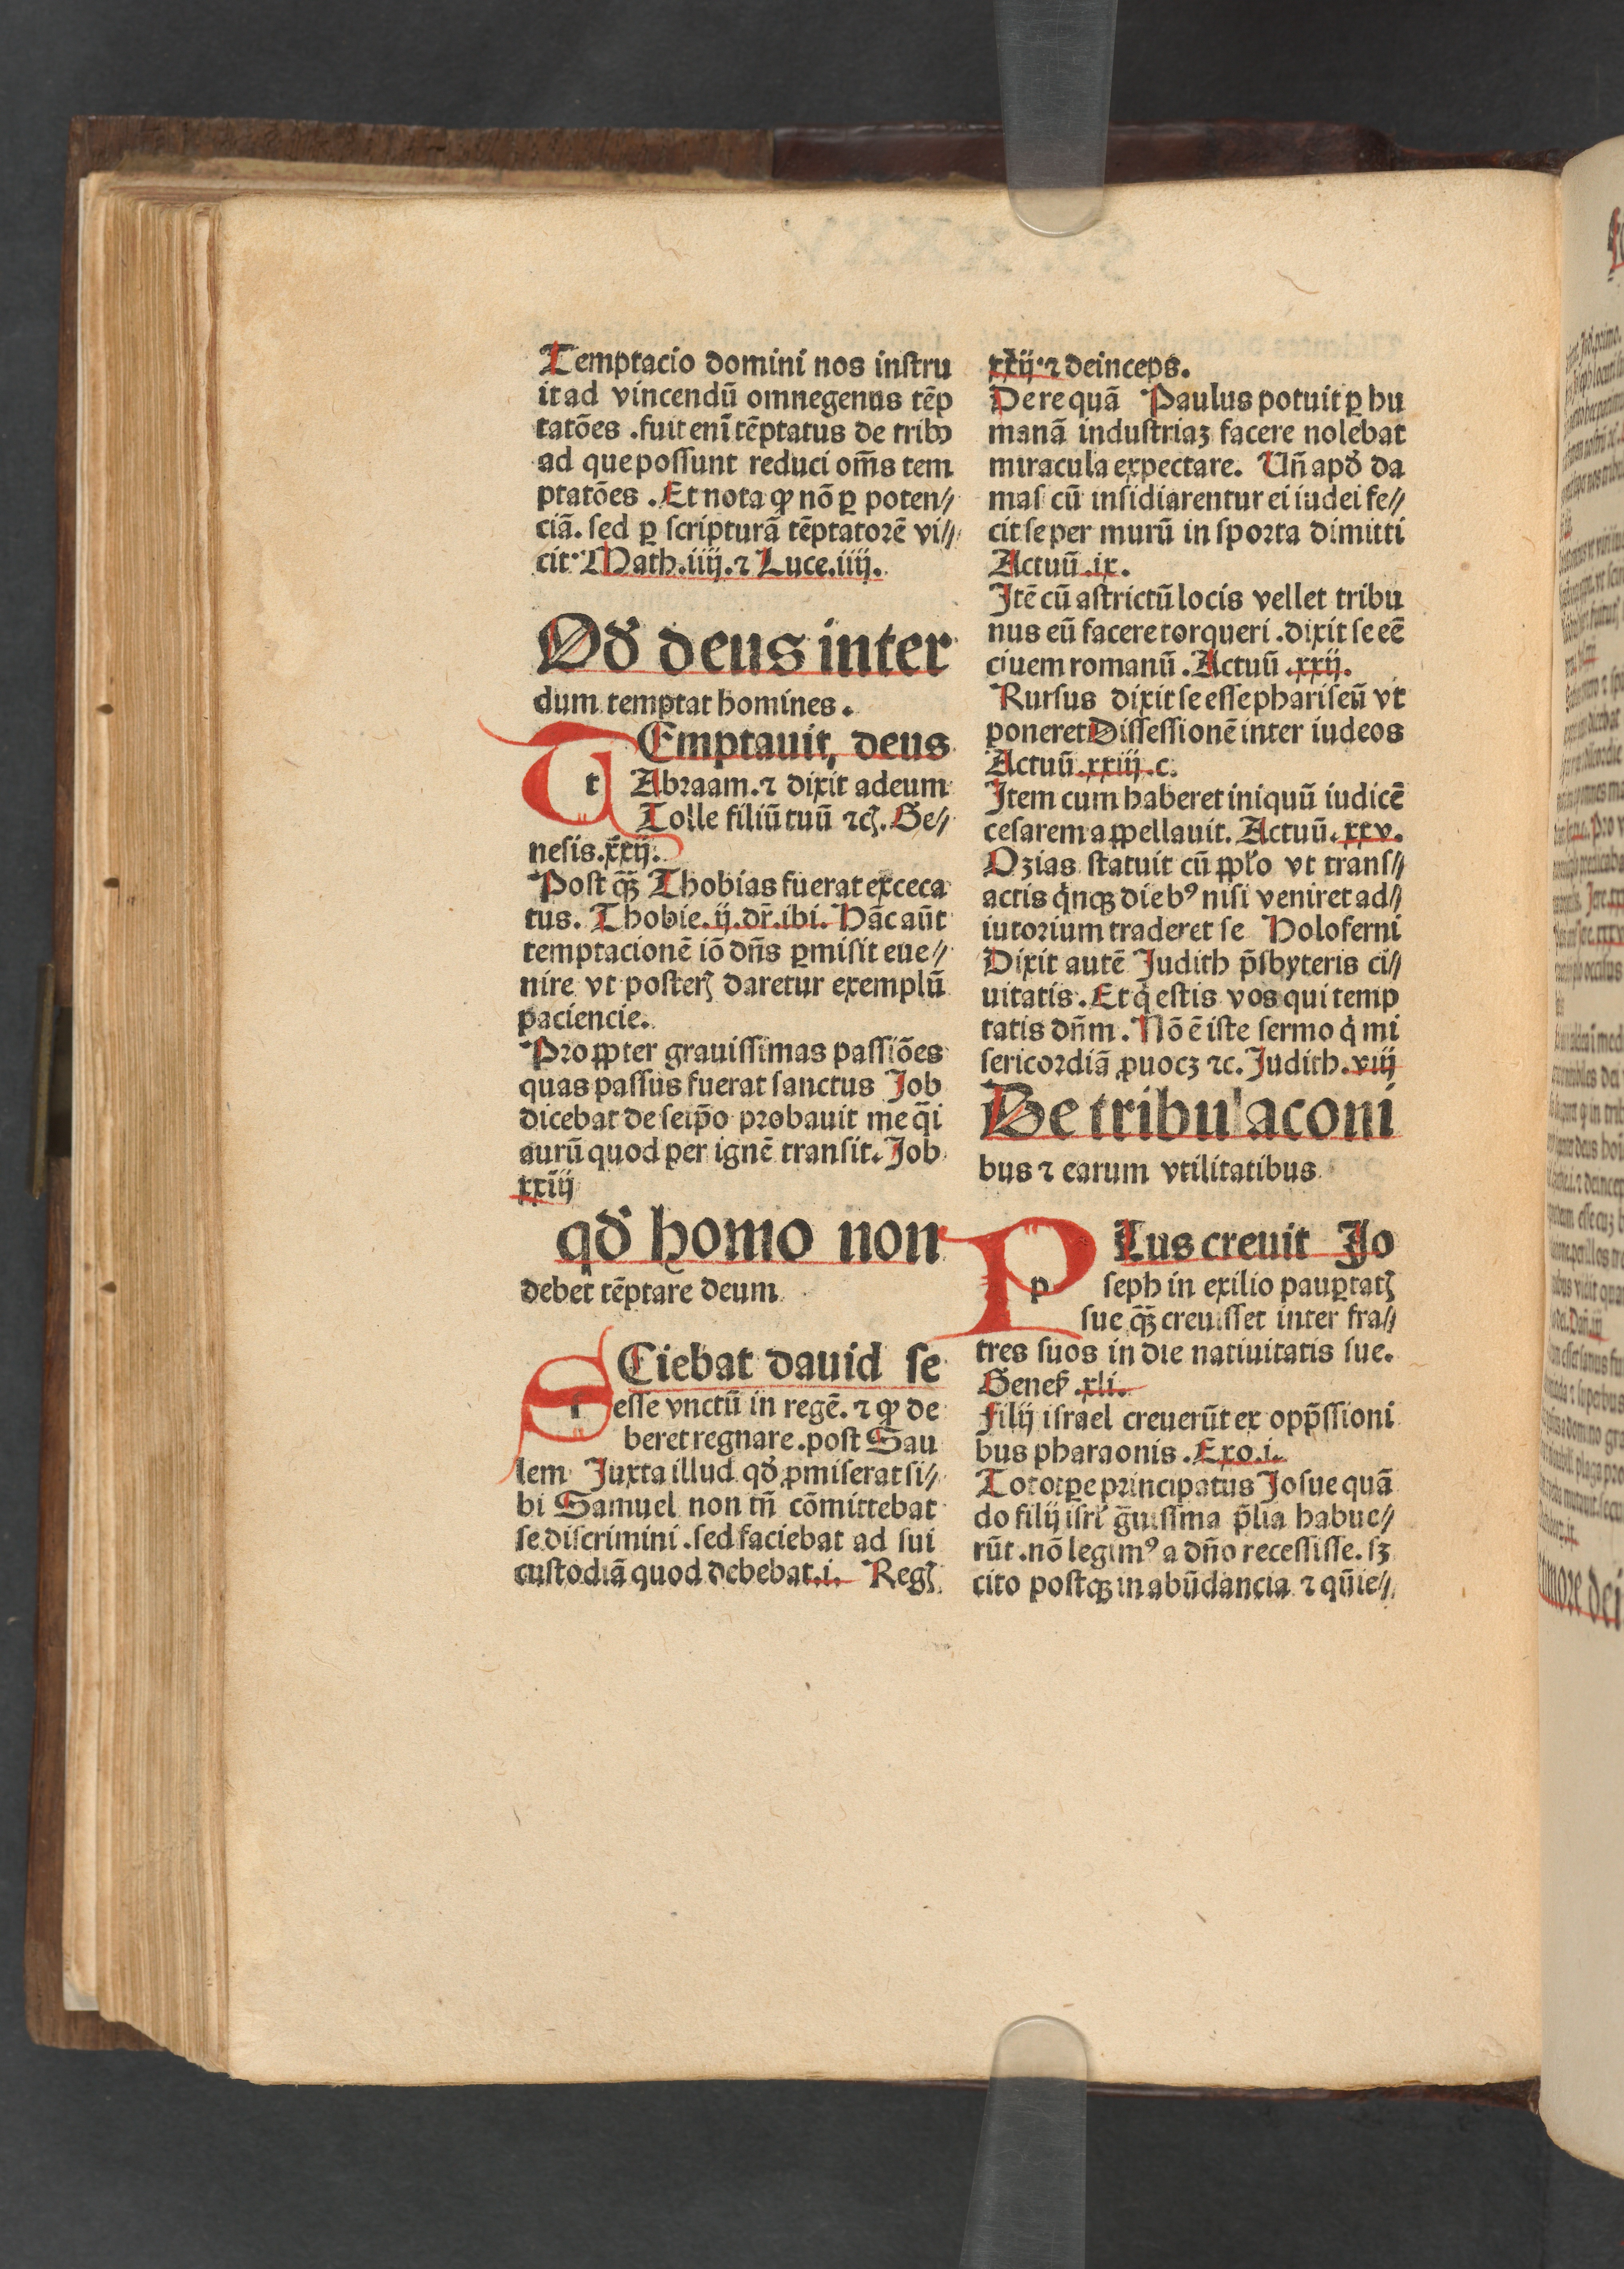 Temptacio domini nos instru
it ad vincendū omnegenus tēp
tatōes .fuit enī tēptatus de tribꝰ
ad que possunt reduci om̄s tem
ptatōes .Et nota ꝙ nō ꝑ poten⸗
ciā. sed ꝑ scripturā tēptatorē vi⸗
cit·Math.iiij.⁊ Luce.iiij.
Qd̕ deus inter
dum temptat homines.
t Emptauit, deus
Abraam.⁊ dixit adeum
Tolle filiū tuū ⁊cꝭ. Ge⸗
nesis.xxij.
Post qꝫ̄ Thobias fuerat exceca
tus. Thobie.ij.dr̄.ibi. Hāc aūt
temptacionē iō dn̄s ꝑmisit eue⸗
nire vt posterꝭ daretur exemplū
paciencie.
Proꝓter grauissimas passiōes
quas passus fuerat sanctus Job
dicebat de seip̄o probauit me q̄i
aurū quod per ignē transit. Job
xxiij
qd̕ homo non
debet tēptare deum
s Ciebat dauid se
esse vnctū in regē. ⁊ ꝙ de
beret regnare .post Sau
lem Juxta illud qd̕ ꝓmiserat si⸗
bi Samuel non tn̄ cōmittebat
se discrimini .sed faciebat ad sui
custodiā quod debebat.i. Regꝭ
xxij·⁊ deinceps.
De re quā Paulus potuit ꝑ hu
manā industriaꝫ facere nolebat
miracula expectare. Un̄ apd̕ da
mas cū insidiarentur ei iudei fe⸗
cit se per murū in sporta dimitti
Actuū .ix.
Itē cū astrictū locis vellet tribu
nus eū facere torqueri .dixit se eē
ciuem romanū .Actuū .xxij.
Rursus dixit se esse phariseū vt
poneret Dissessionē inter iudeos
Actuū.xxiij.c.
Item cum haberet iniquū iudicē
cesarem aꝓpellauit. Actuū.xxv.
Ozias statuit cū ꝓpl̕o vt trans⸗
actis q̇nqꝫ diebꝰ nisi veniret ad⸗
iutorium traderet se Holoferni
Dixit autē Judith p̄sbyteris ci⸗
uitatis .Et q̇ estis vos qui temp
tatis dn̄m .Nō ē iste sermo q̇ mi
sericordiā ꝓuocꝫ ⁊c. Judith.viij
De tribulaconi
bus ⁊ earum vtilitatibus
p Lus creuit Jo
seph in exilio pauꝑtatꝭ
sue qꝫ̄ creuisset inter fra⸗
tres suos in die natiuitatis sue.
Genes̕ .xli.
Filij israel creuerūt ex opp̄ssioni
bus pharaonis .Exo.i.
Toto tꝑe principatus Josue quā
do filij isrl̕ ḡuissima p̄lia habue⸗
rūt .nō legimꝰ a dn̄o recessisse. sꝫ
cito postqꝫ in abūdancia ⁊ qūie⸗